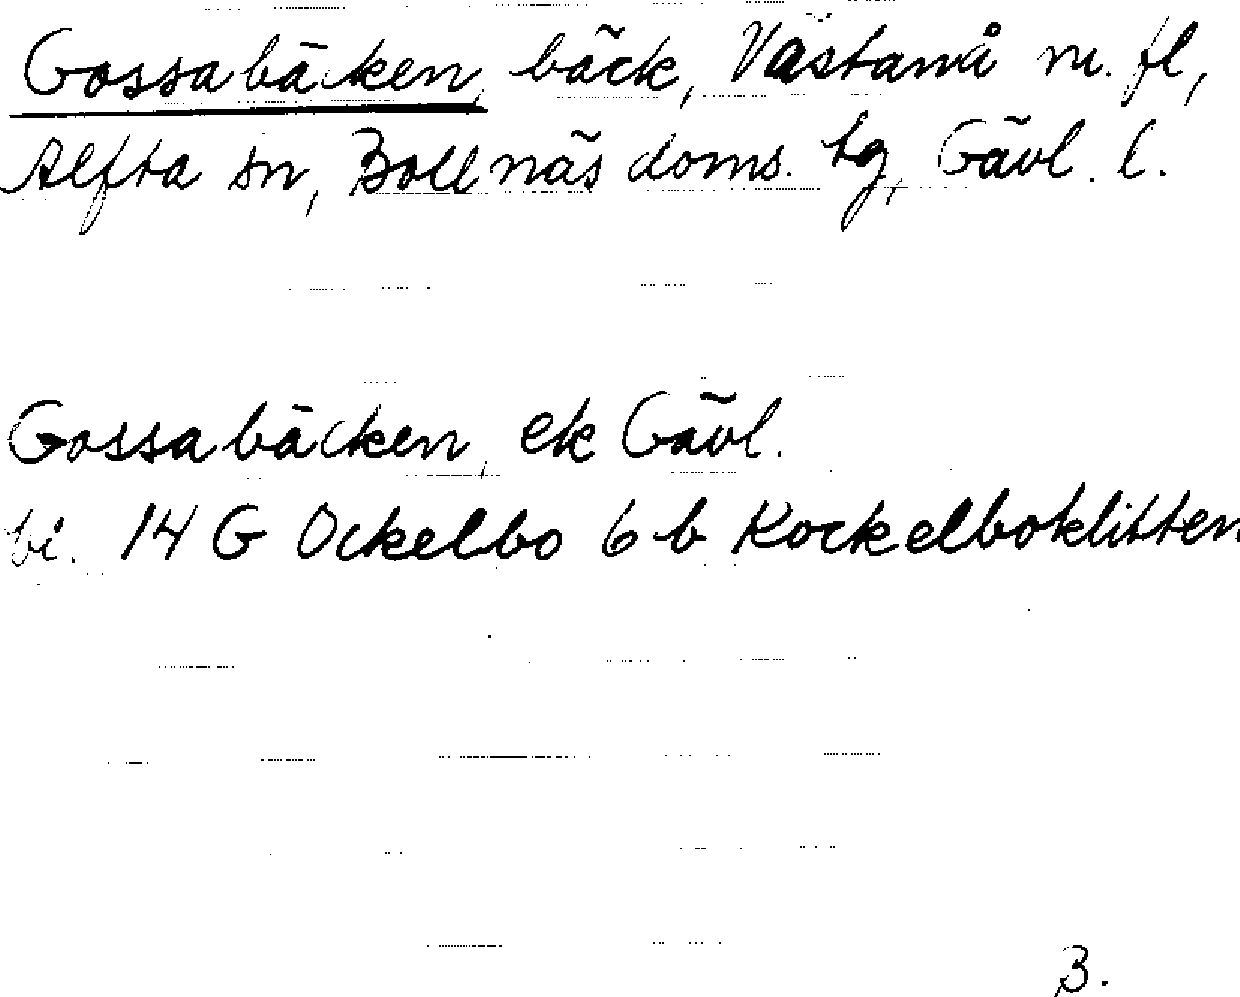 Gossabäcken, bäck, Västanå m. fl,
Alfta sn, Bollnäs doms. tg, Gävl. l.
Gossabäcken, ek Gävl.
bi. 14 G Ockelbo 6 b Kockelboklitten
B.